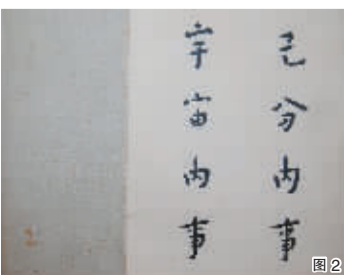 己分内事
宇宙内事
图2